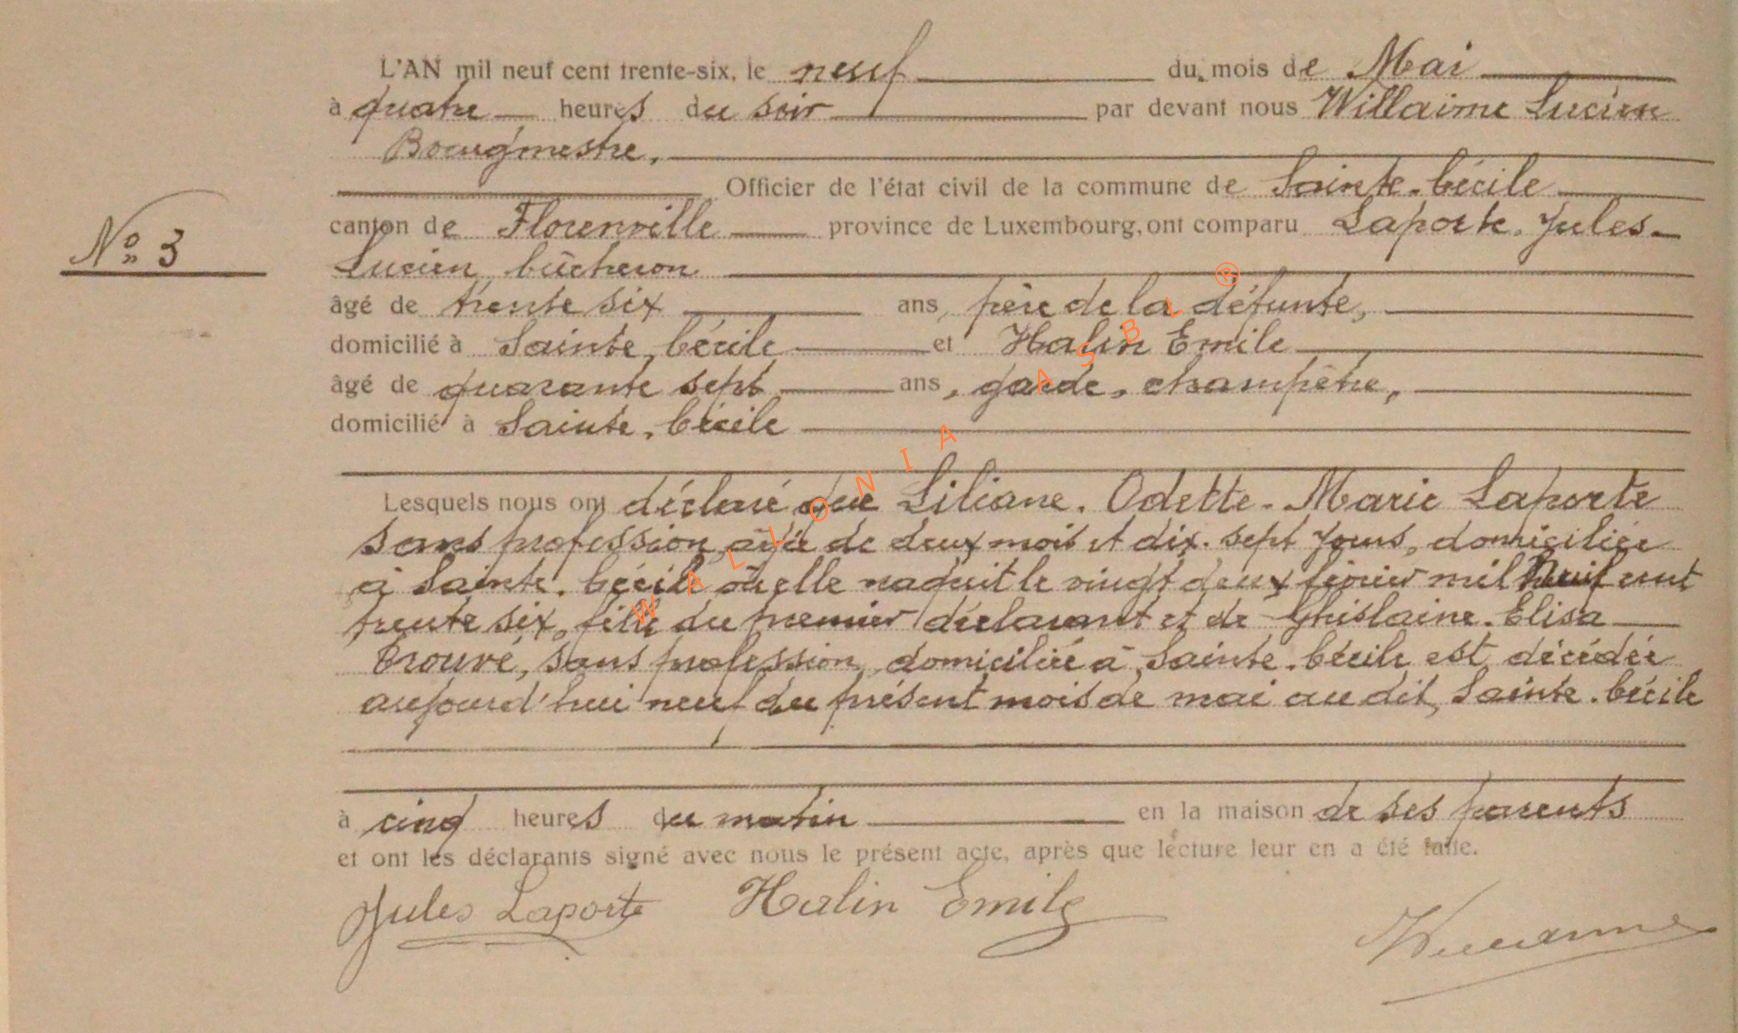 L'AN mil neuf cent trente-six, le neuf du mois de Mai
à quatre heures du soir par devant nous Willaime Lucien
Bourgmestre,
Officier de l'état civil de la commune de Sainte-Cécile
N° 3
canton de Florenville province de Luxembourg, ont comparu Laporte Jules-
Lucien, bûcheron
âgé de trente six ans, père de la défunte,
domicilié à Sainte-Cécile et Halin Emile
âgé de quarante sept ans, garde-champêtre,
domicilié à Sainte-Cécile
Lesquels nous ont déclaré que Liliane-Odette-Marie Laporte
sans profession, agée de deux mois et dix-sept jours, domiciliée
à Sainte-Cécile où elle naquit le vingt deux février mil neuf cent
trente six, fille du premier déclarant et de Ghislaine-Elisa
Trouvé, sans profession, domiciliée à Sainte-Cécile est décédée
aujourd'hui neuf du présent mois de mai au dit Sainte-Cécile
à cinq heures du matin en la maison de ses parents
et ont les déclarants signé avec nous le présent acte, après que lecture leur en a été faite.
Jules Laporte Halin Emile Willaime
WALLONIA ASBL ®